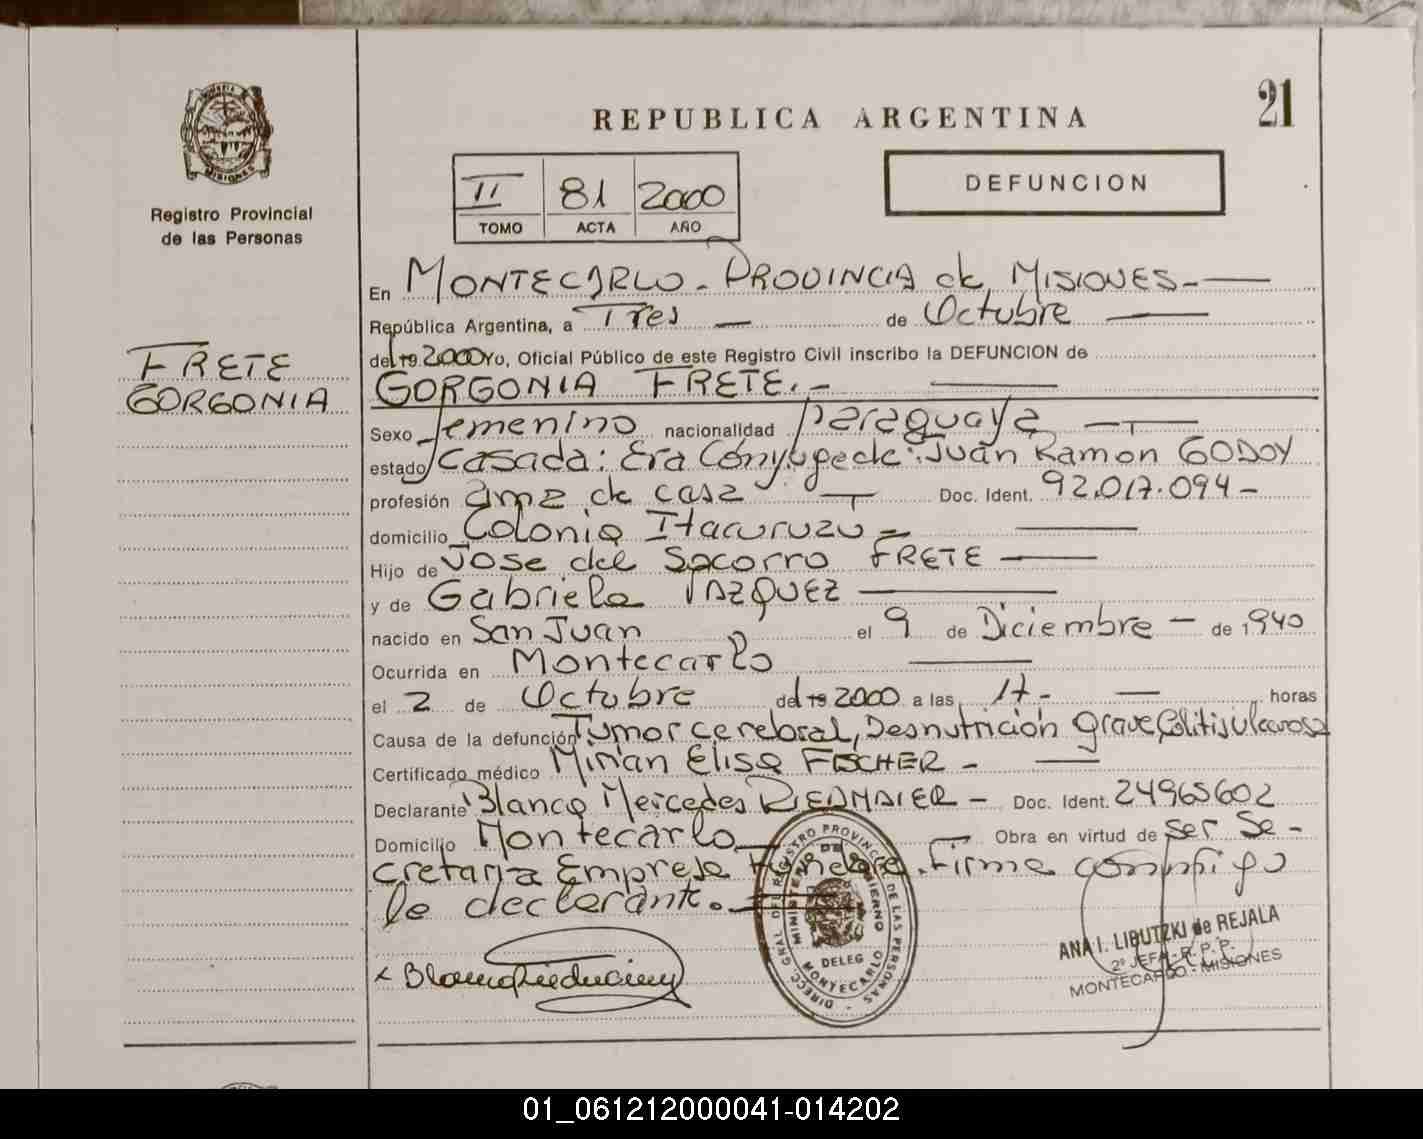 REPUBLICA ARGENTINA
21
II 81 2000
TOMO ACTA AÑO
DEFUNCION
MISIONES
Registro Provincial
de las Personas
FRETE
GORGONIA
En MONTECARLO - PROVINCIA de MISIONES -
República Argentina, a Tres de Octubre
del 19 2000 Yo, Oficial Público de este Registro Civil inscribo la DEFUNCION de
GORGONIA FRETE. -
Sexo femenino nacionalidad paraguaya
estado casada: Era Cónyuge de: Juan Ramon GODOY
profesión ama de casa Doc. Ident. 92.017.094 -
domicilio Colonia Itacuruzu -
Hijo de Jose del Socorro FRETE
y de Gabriela VAZQUEZ
nacido en San Juan el 9 de Diciembre - de 1940
Ocurrida en Montecarlo
el 2 de Octubre del 19 2000 a las 17 - horas
Causa de la defunción Tumor cerebral, Desnutrición grave, Colitis ulcerosa
Certificado médico Mirian Elisa FISCHER -
Declarante Blanca Mercedes RIEDMAIER - Doc. Ident. 24965602
Domicilio Montecarlo Obra en virtud de ser Se-
cretaria Empresa Fúnebre. Firma conmigo
la declarante.
DIRECC. GRAL. DEL REGISTRO PROVINCIAL DE LAS PERSONAS
MINISTERIO DE GOBIERNO
DELEG
MONTECARLO
ANA I. LIBUTZKI de REJALA
2º JEFA - R. P. P.
MONTECARLO - MISIONES
01_061212000041-014202